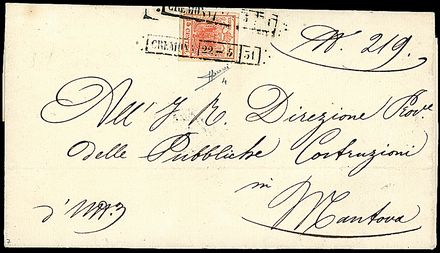 CREMONA
N.º 219.
CREMONA 22 5 51
All' I. R. Direzione Prov.le
delle Pubbliche Costruzioni
in
Mantova